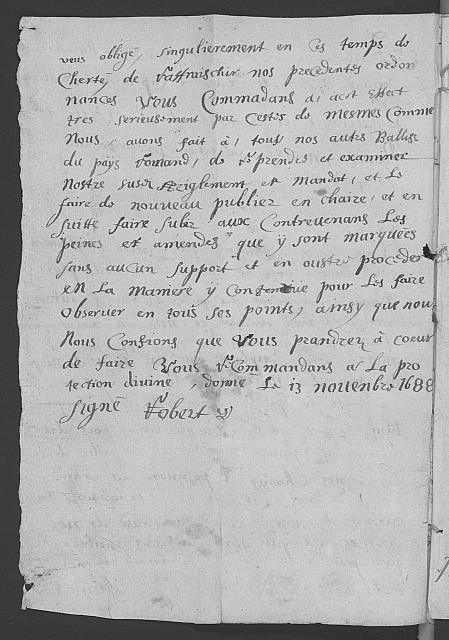 vous obligé, singulierement en ces temps de
Cherté, de raffraischir nos precedentes ordon
nances Vous Commadans a, acet Effect
tres serieusement par Cestes de mesmes Comme
Nous avons fait à, tous nos autres Ballifs
du pays Romand, de reprendre et examiner
Nostre susdit Reiglement et Mandat, et Le
faire de nouveau publier en chaire, et en
suitte faire subir aux Contrevenans Les
peines et amendes que y sont marquées
sans aucun support et en oustre proceder
en La Maniere y Contenue pour Les faire
Observer en tous ses points, ainsy que nou
Nous Confions que Vous prandrez à coeur
de faire Vous reCommandans a La pro
tection divine, donné Le 13 novembre 1688
signé Robert